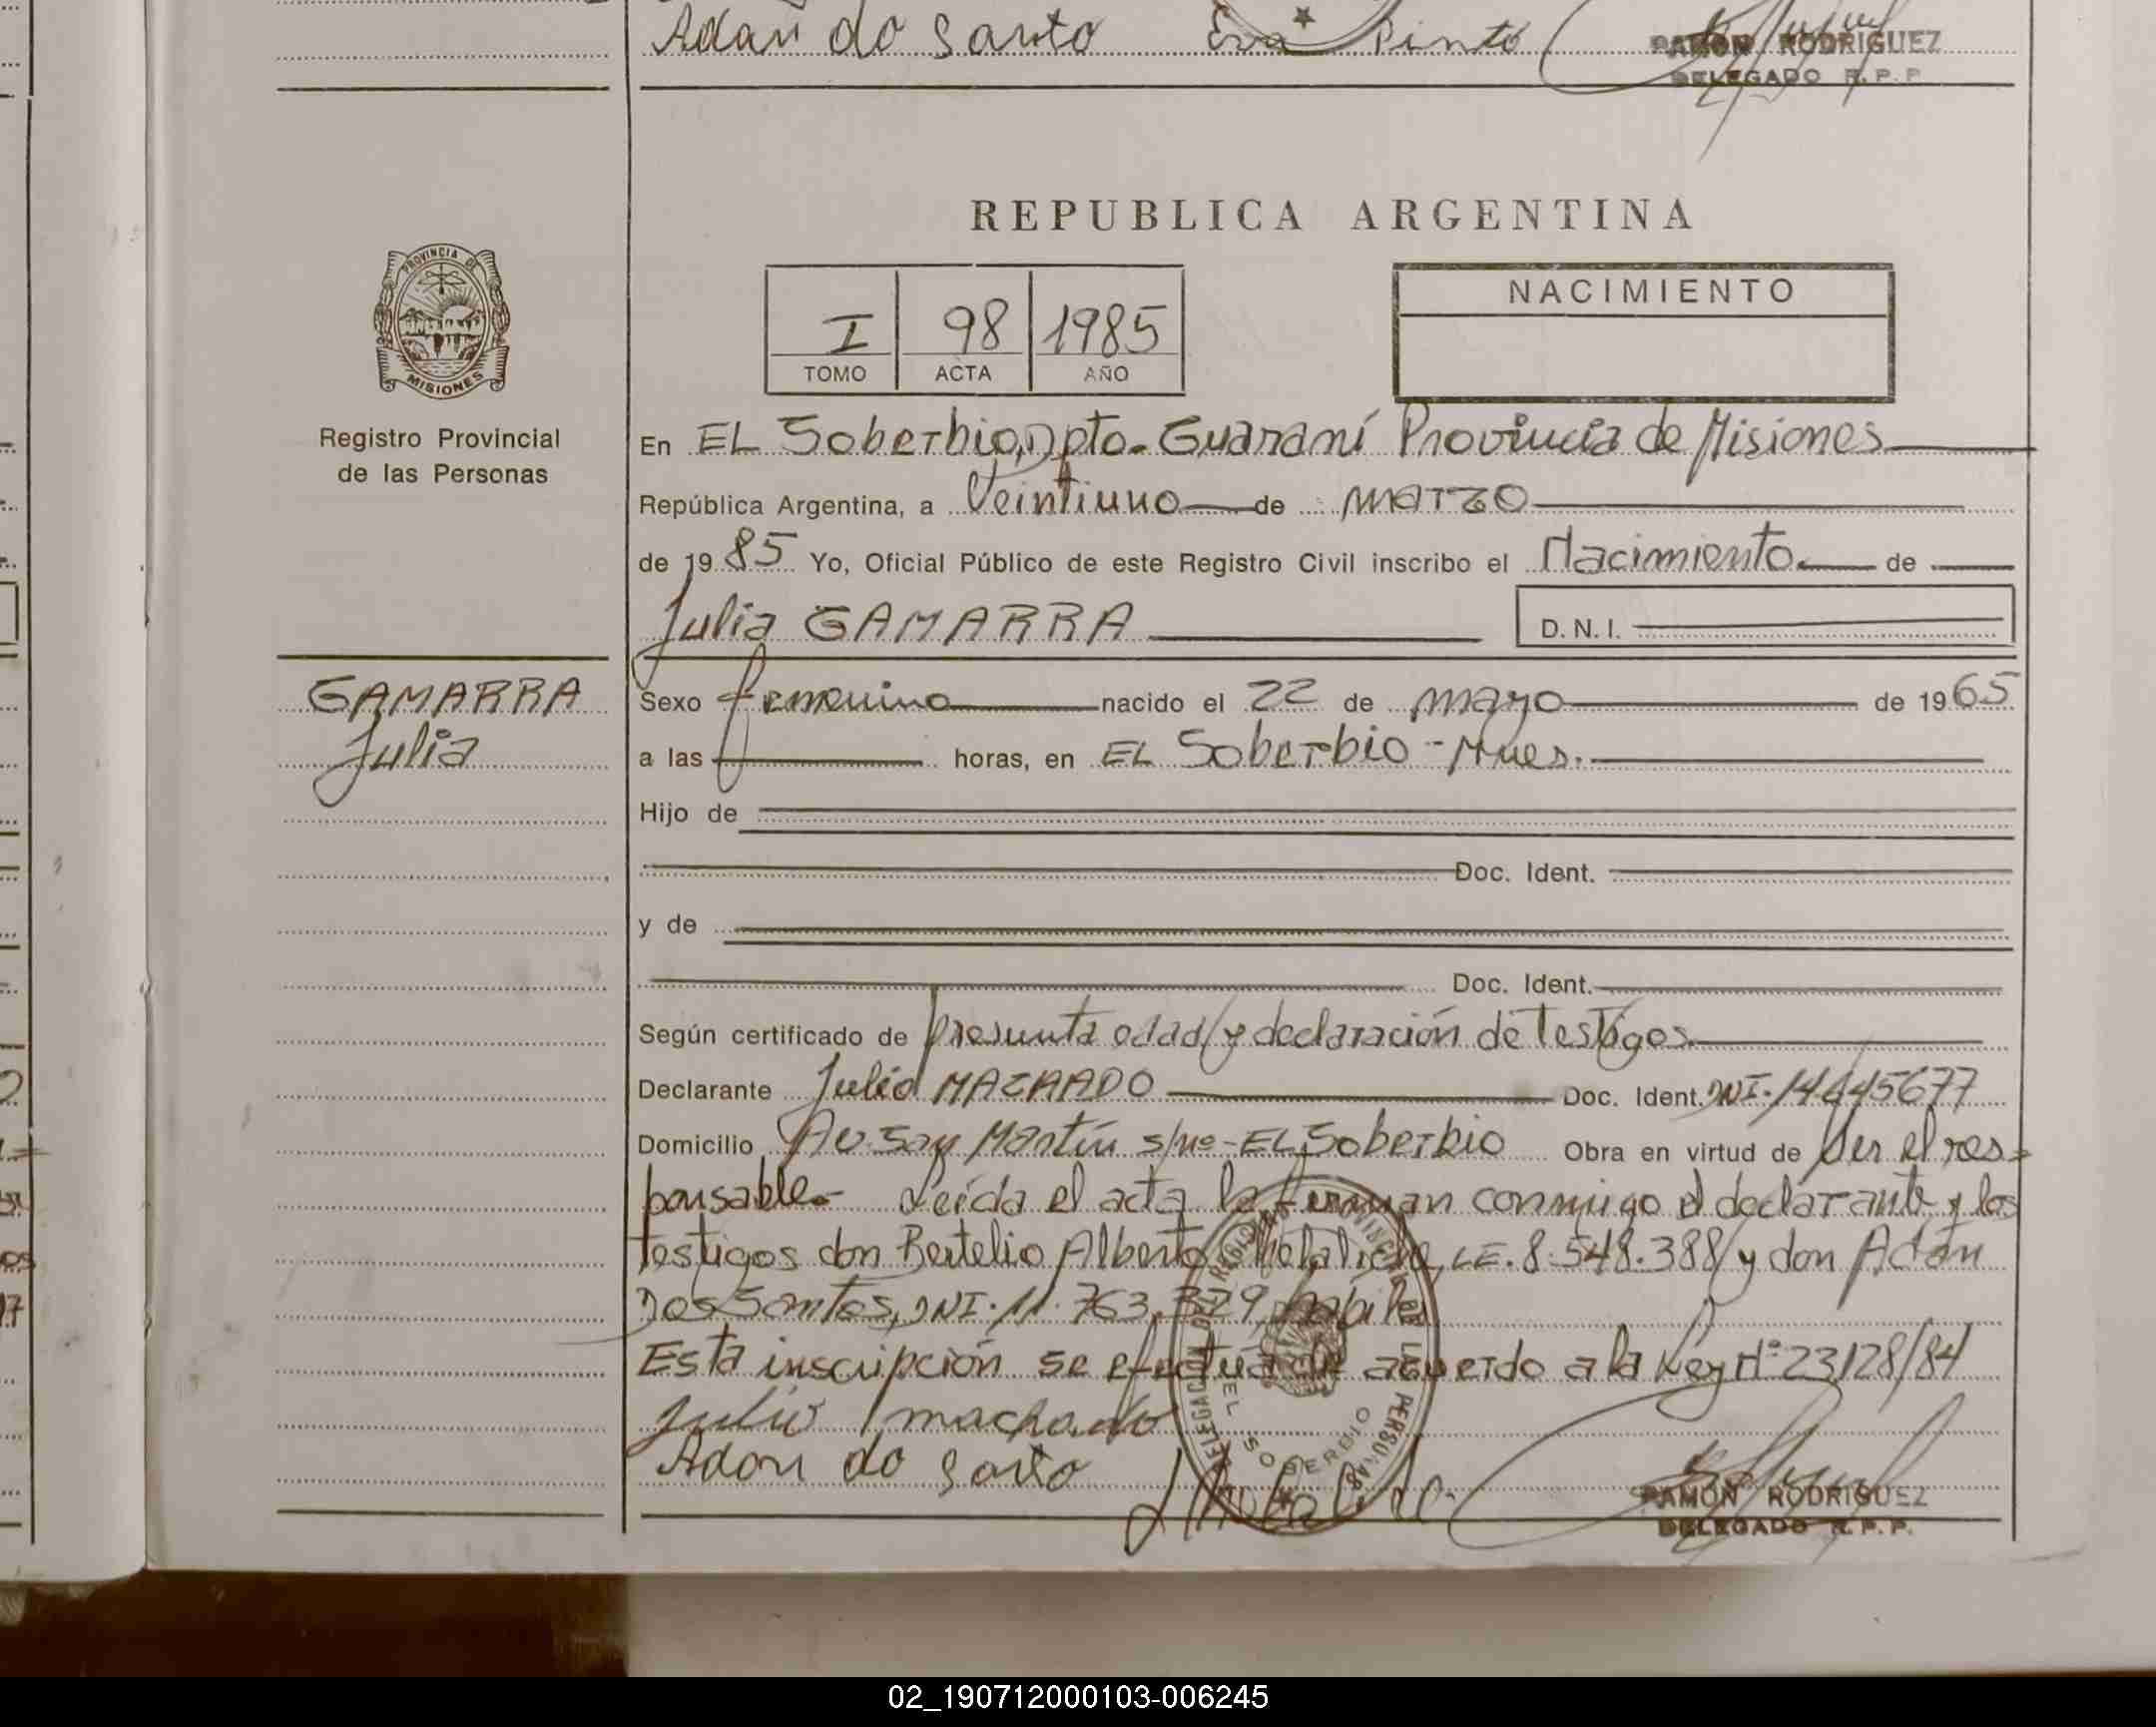 Adan do Santo Eva Pinto
RAMON RODRIGUEZ
DELEGADO R. P. P.
REPUBLICA ARGENTINA
PROVINCIA DE
MISIONES
Registro Provincial
de las Personas
I 98 1985
TOMO ACTA AÑO
NACIMIENTO
En EL Soberbio, Dpto. Guaraní Provincia de Misiones
República Argentina, a Veintiuno de marzo
de 1985 Yo, Oficial Público de este Registro Civil inscribo el Nacimiento de
Julia GAMARRA D. N. I.
GAMARRA
Julia
Sexo femenino nacido el 22 de mayo de 1965
a las horas, en EL Soberbio - Mnes.
Hijo de
Doc. Ident.
y de
Doc. Ident.
Según certificado de presunta edad y declaración de Testigos
Declarante Julio MACHADO Doc. Ident. DNI. 14445677
Domicilio Av. San Martín s/nº - EL Soberbio Obra en virtud de Ser el res=
ponsable.- Leída el acta la firman conmigo el declarante y los
Testigos don Bertelio Alberto LE. 8.548.388 y don Adán
Dos Santos, DNI. 11.763.329, hábiles
Esta inscripción se efectúa de acuerdo a la Ley Nº 23128/84
Julio machado
Adan do Santo
EL SOBERBIO
RAMON RODRIGUEZ
DELEGADO R. P. P.
02_190712000103-006245